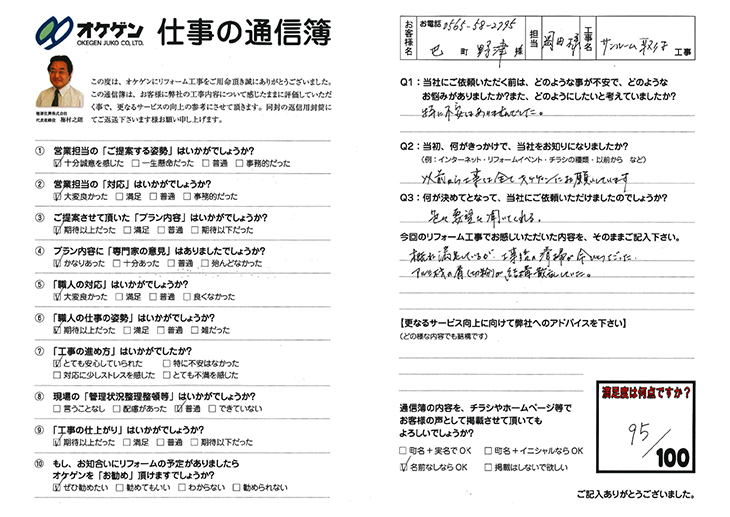 オケゲン
OKEGEN JUKO CO,.LTD.
仕事の通信簿
この度は、オケゲンにリフォーム工事をご用命頂き誠にありがとうございました。
この通信簿は、お客様に弊社の工事内容について感じたままに評価していただく事で、更なるサービスの向上の参考にさせて頂きます。同封の返信用封筒にてご返送下さいます様お願い申し上げます。
代表取締役 梅村之剛
① 営業担当の「ご提案する姿勢」はいかがでしょうか?
☑十分誠意を感じた □一生懸命だった □普通 □事務的だった
② 営業担当の「対応」はいかがでしょうか?
☑大変良かった □満足 □普通 □事務的だった
③ ご提案させて頂いた「プラン内容」はいかがでしょうか?
☑期待以上だった □満足 □普通 □期待以下だった
④ プラン内容に「専門家の意見」はありましたでしょうか?
☑かなりあった □十分あった □普通 □殆んどなかった
⑤ 「職人の対応」はいかがでしょうか?
☑大変良かった □満足 □普通 □良くなかった
⑥ 「職人の仕事の姿勢」はいかがでしょうか?
☑期待以上だった □満足 □普通 □雑だった
⑦ 「工事の進め方」はいかがでしたか?
☑とても安心していられた □特に不安はなかった
□対応に少しストレスを感じた □とても不満を感じた
⑧ 現場の「管理状況整理整頓等」はいかがでしょうか?
□言うことなし □配慮があった ☑普通 □できていない
⑨ 「工事の仕上がり」はいかがでしょうか?
☑期待以上だった □満足 □普通 □期待以下だった
⑩ もし、お知合いにリフォームの予定がありましたら
オケゲンを「お勧め」頂けますでしょうか?
☑ぜひ勧めたい □勧めてもいい □わからない □勧められない
お客様名 お電話 0565-58-2795 担当 岡田様 工事名 サンルーム 工事
町 様
Q1:当社にご依頼いただく前は、どのような事が不安で、どのような
お悩みがありましたか?また、どのようにしたいと考えていましたか?
特に不安はありませんでした。
Q2:当初、何がきっかけで、当社をお知りになりましたか?
(例:インターネット・リフォームイベント・チラシの種類・以前から など)
以前から工事は全てオケゲンにお願いしています
Q3:何が決めてとなって、当社にご依頼いただけましたのでしょうか?
色々要望を聞いてくれる。
今回のリフォーム工事でお感いいただいた内容を、そのままご記入下さい。
概ね満足しているが、工事後の清掃が今いちだった.
アルミ材の屑(切粉)が結構散乱していた。
【更なるサービス向上に向けて弊社へのアドバイスを下さい】
(どの様な内容でも結構です)
通信簿の内容を、チラシやホームページ等で
お客様の声として掲載させて頂いても
よろしいでしょうか?
□町名+実名でOK □町名+イニシャルならOK
☑名前なしならOK □掲載はしないで欲しい
満足度は何点ですか?
95/100
ご記入ありがとうございました。